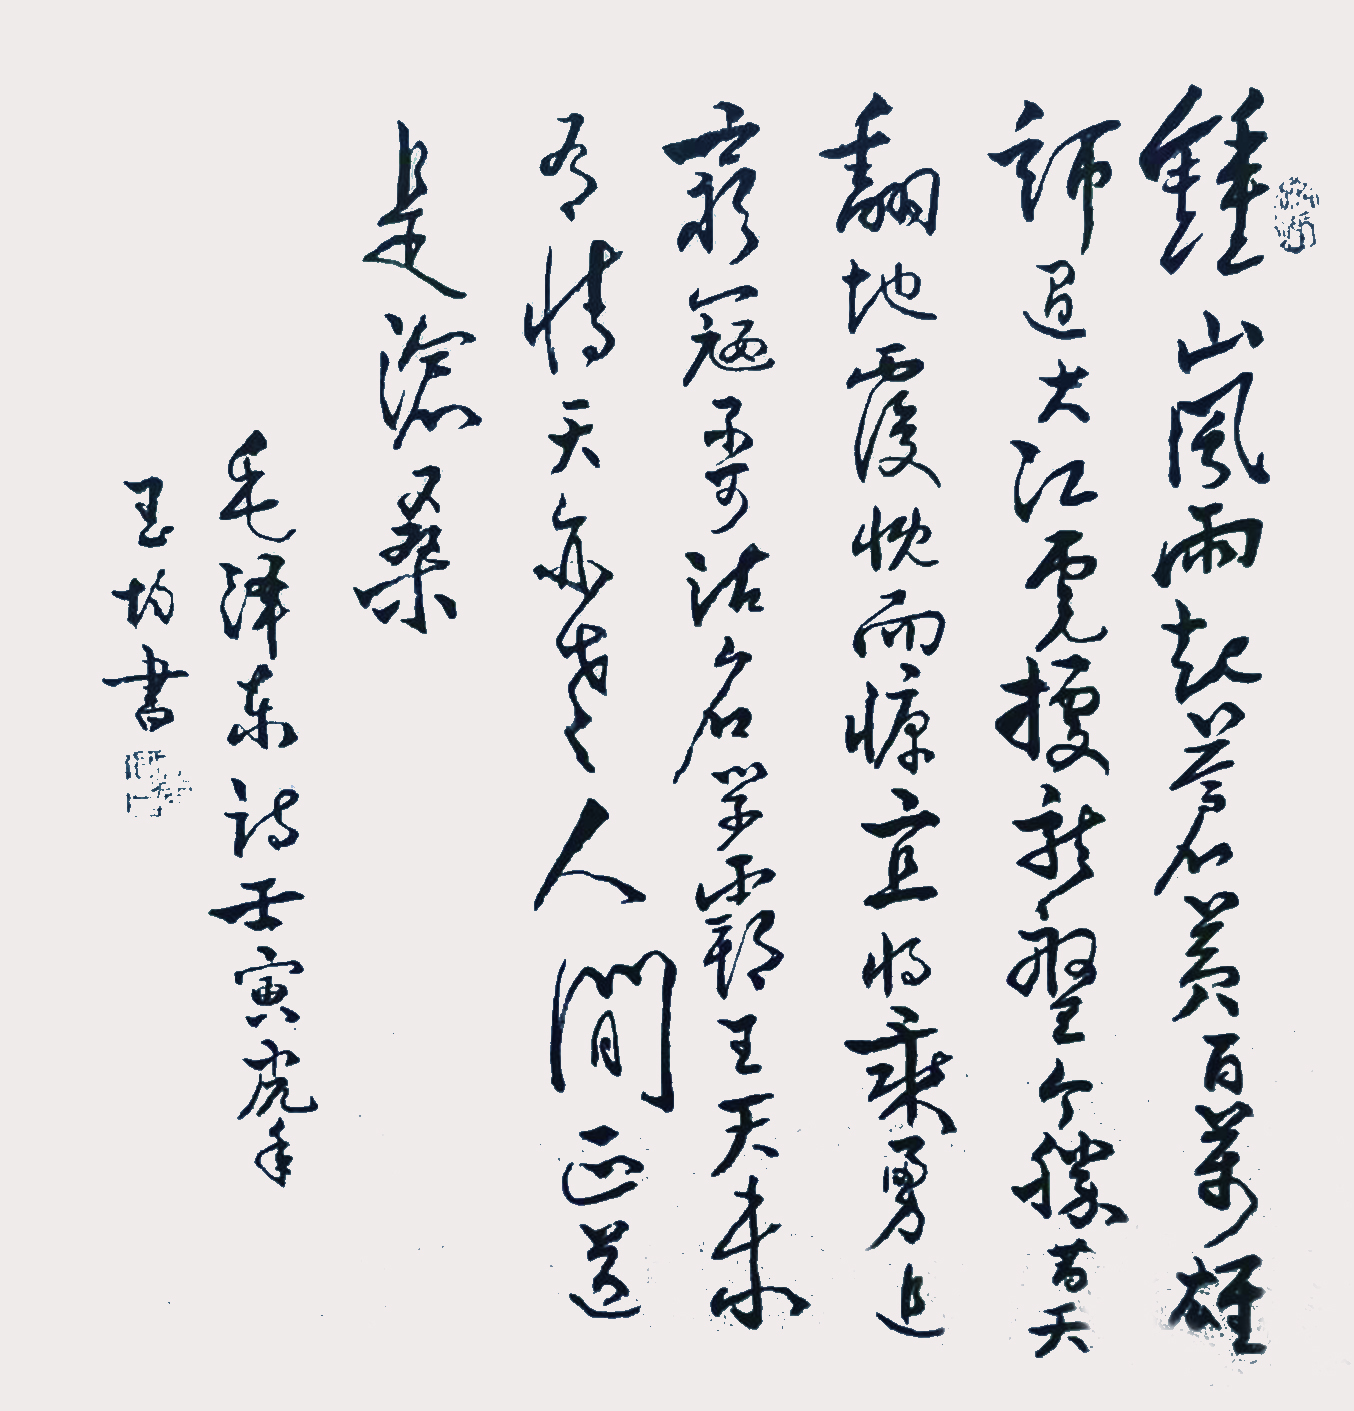 鍾山風雨起蒼黃百萬雄
師過大江虎據龍盤今勝昔天
翻地覆慨而慷宜將乘勇追
窮寇不可沽名學霸王天
有情天亦老人間正道
是滄桑
毛澤东詩壬寅虎年
玉均書